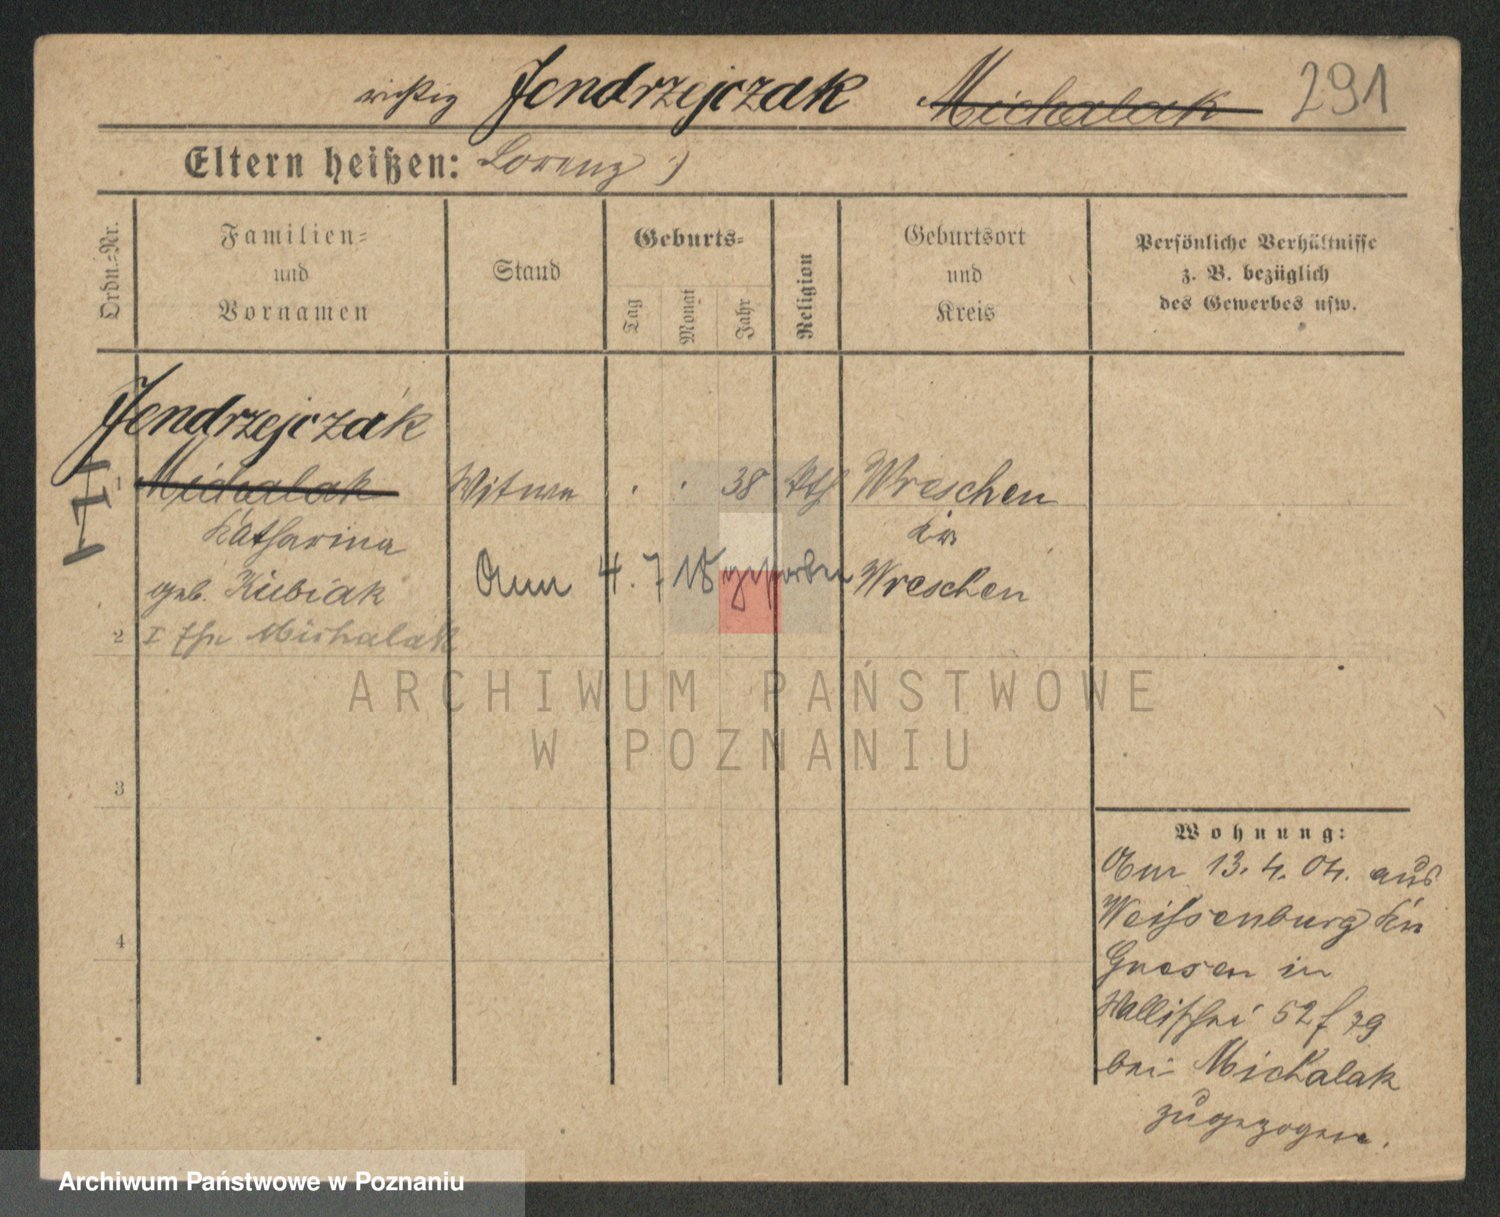 richtig Jendrzejczak Michalak 291
Eltern heißen: Lorenz )
Ordn.=Nr.
Familien=
und
Vornamen
Stand
Geburts=
Tag
Monat
Jahr
Religion
Geburtsort
und
Kreis
Persönliche Verhältnisse
z. B. bezüglich
des Gewerbes usw.
Jendrzejczak
1 Michalak Witwe . . 38 kth Wreschen
Katharina Krs
geb. Kubiak Am 4. 7. 15 gestorben Wreschen
2 I Ehe Michalak
ARCHIWUM PAŃSTWOWE
W POZNANIU
3
Wohnung:
Am 13. 4. 04. aus
Weissenburg Krs
4
Gnesen in
Wallischei 52/79
bei Michalak
zugezogen.
Archiwum Państwowe w Poznaniu